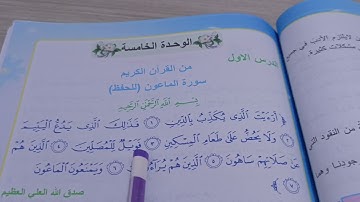 الوحدة الخامسة
الدرس الاول
من القرآن الكريم
سورة الماعون (للحفظ)
بِسْمِ اللَّهِ الرَّحْمَٰنِ الرَّحِيمِ
أَرَءَيْتَ الَّذِي يُكَذِّبُ بِالدِّينِ ١ فَذَٰلِكَ الَّذِي يَدُعُّ الْيَتِيمَ
٢ وَلَا يَحُضُّ عَلَىٰ طَعَامِ الْمِسْكِينِ ٣ فَوَيْلٌ لِّلْمُصَلِّينَ ٤ الَّذِينَ هُمْ
عَن صَلَاتِهِمْ سَاهُونَ ٥ الَّذِينَ هُمْ يُرَاءُونَ ٦ وَيَمْنَعُونَ الْمَاعُونَ
٧
صدق الله العلي العظيم